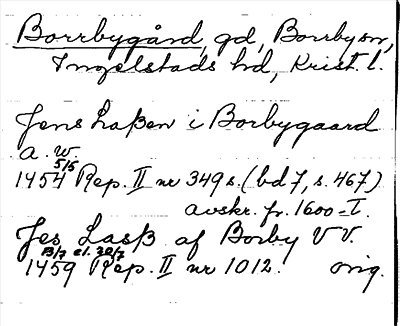 Borrbygård, gd, Borrby sn,
Ingelstads hd, Krist. l.
Jens Laßen i Borbygaard
a. w.
5/5
1454 Rep. II nr 349 s. (bd 7, s. 467)
avskr. fr. 1600-t.
Jes Lasß af Borby VV.
13/7 el. 20/7
1459 Rep. II nr 1012. orig.